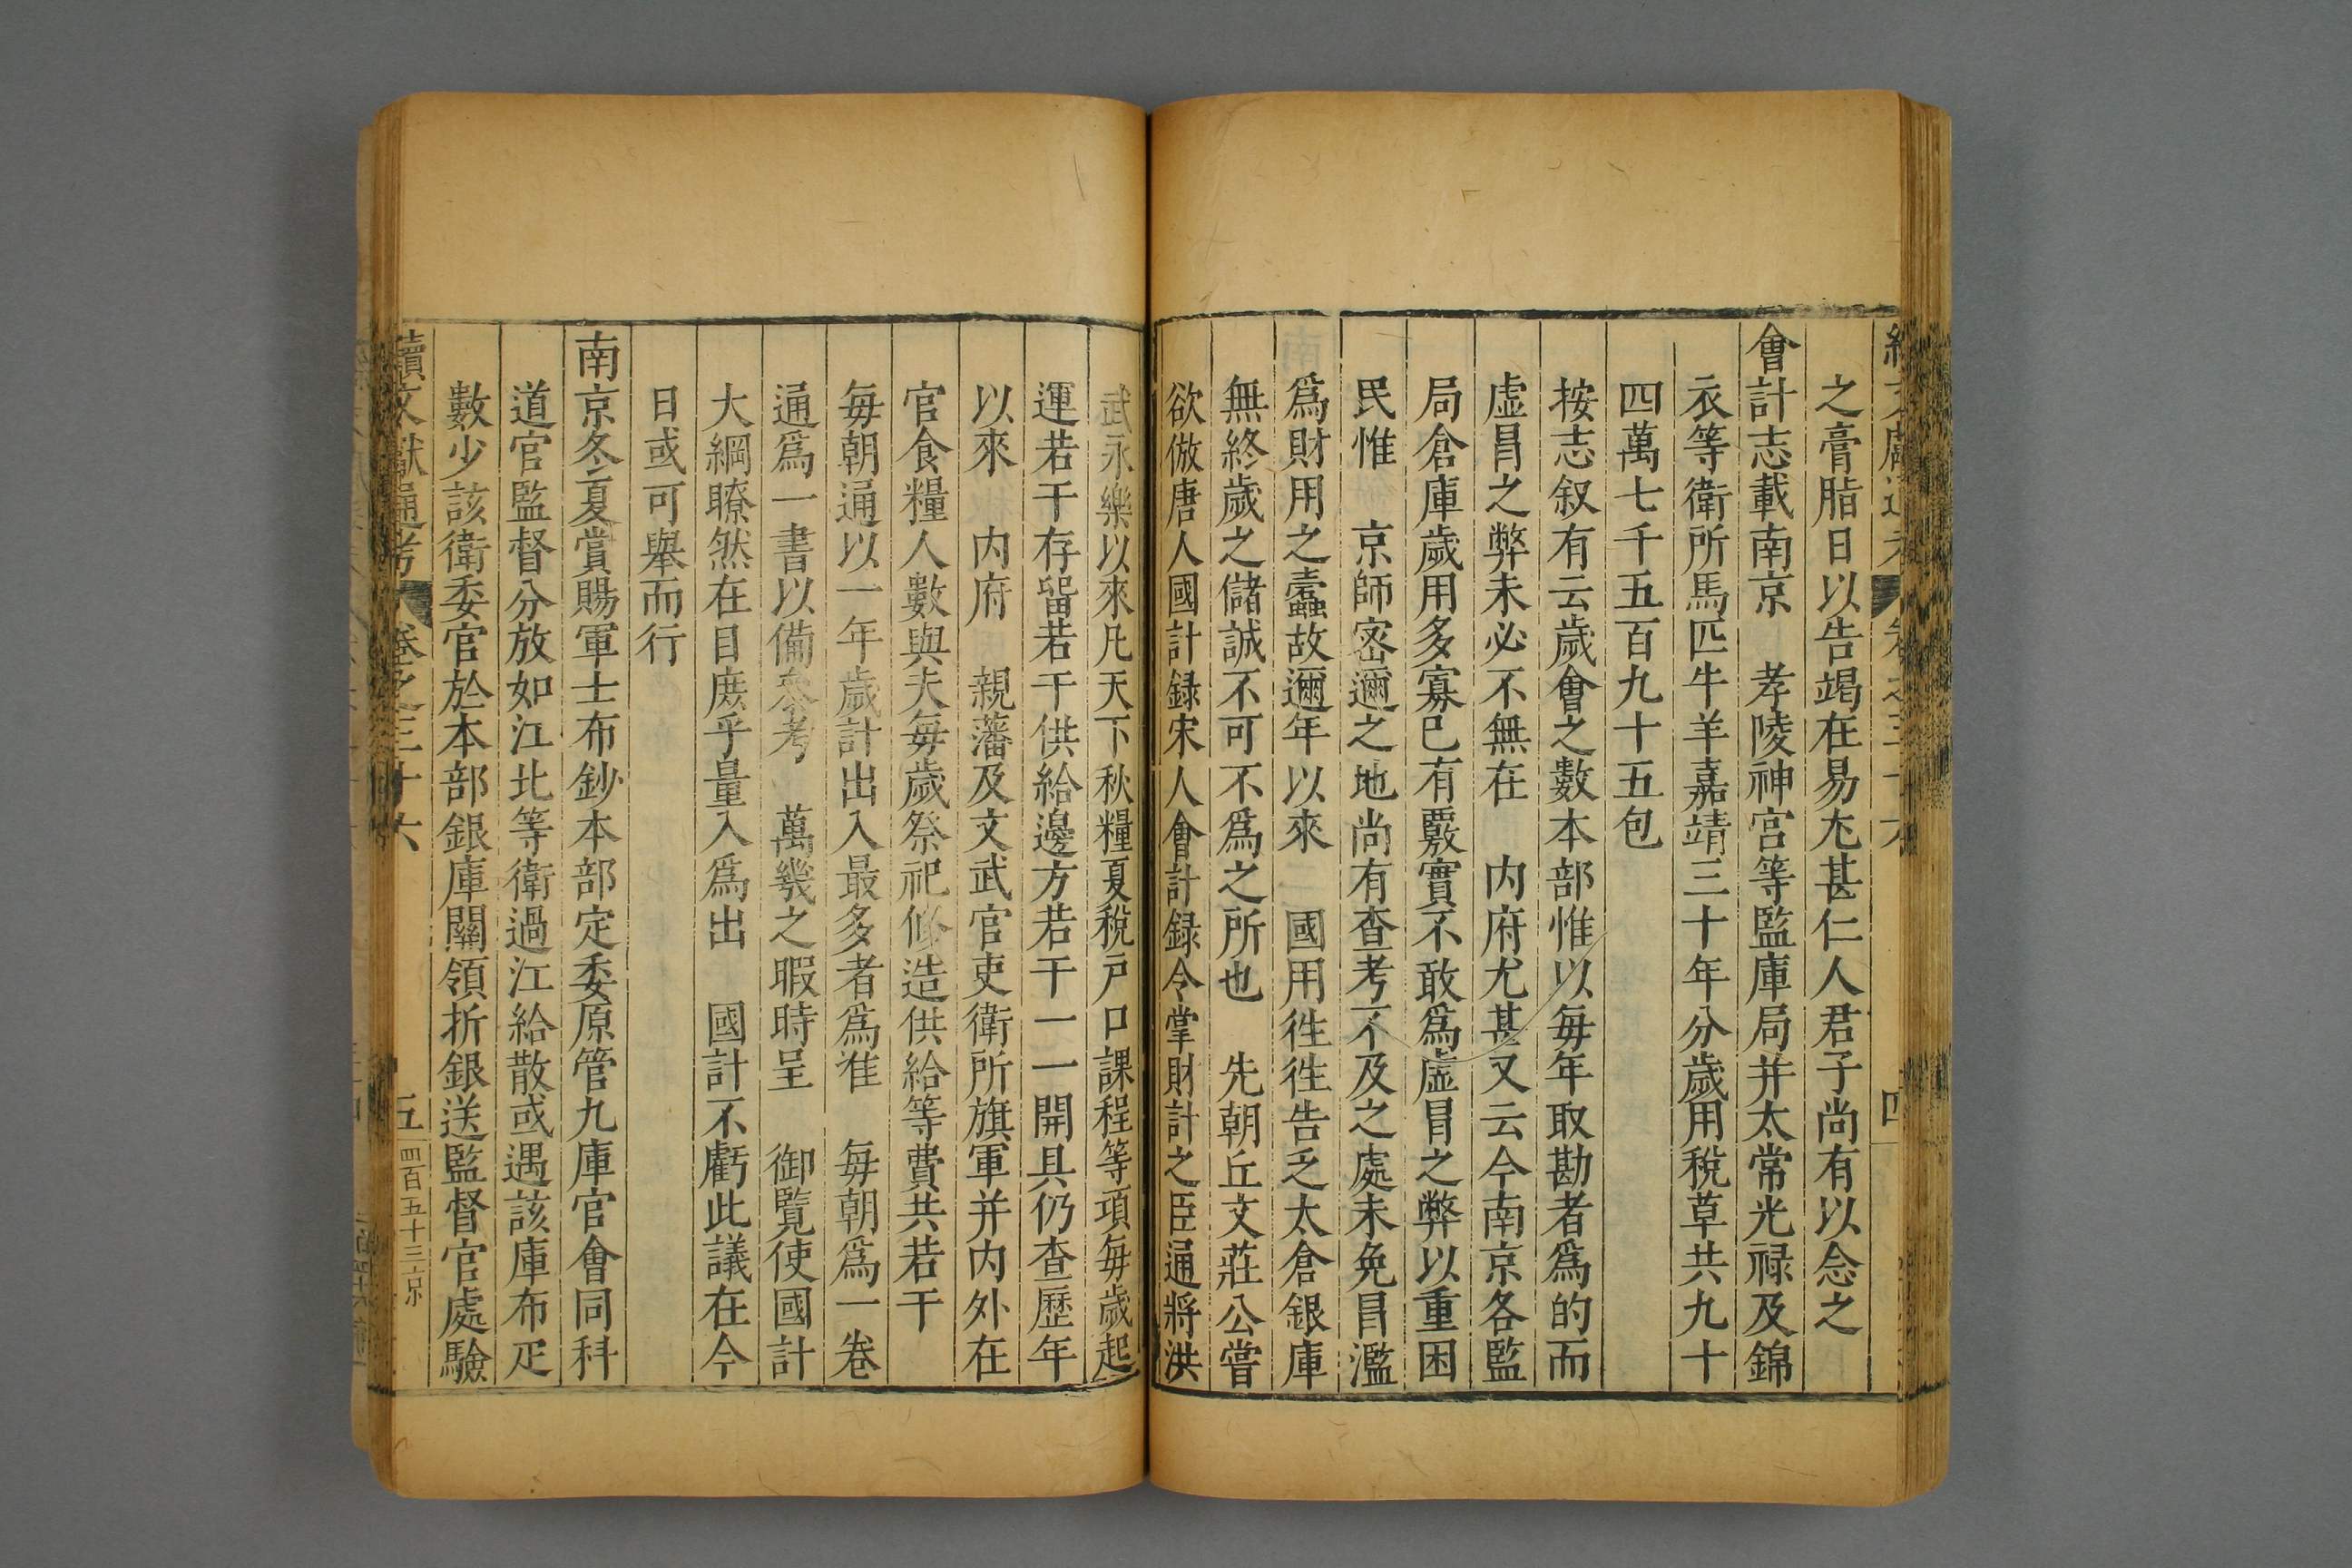 之膏脂日以告竭在易尤甚仁人君子尚有以念之
會計志載南京　孝陵神宮等監庫局并太常光祿及錦
衣等衛所馬匹牛羊嘉靖三十年分歲用稅草共九十
四萬七千五百九十五包
按志叙有云歲會之數本部惟以每年取勘者爲的而
虛冒之弊未必不無在　内府尤甚又云今南京各監
局倉庫歲用多寡已有覈實不敢爲虛冒之弊以重困
民惟　京師密邇之地尚有查考不及之處未免冒濫
爲財用之蠹故邇年以來　國用徃徃告乏太倉銀庫
無終歲之儲誠不可不爲之所也　先朝丘文莊公嘗
欲倣唐人國計録宋人會計録令掌財計之臣通將洪
武永樂以來凡天下秋糧夏稅戸口課程等項每歲起
運若干存留若干供給邊方若干一一開具仍查歷年
以來　内府　親藩及文武官吏衛所旗軍并内外在
官食糧人數與夫每歲祭祀修造供給等費共若干
每朝通以一年歲計出入最多者爲准　每朝爲一卷
通爲一書以備參考　萬幾之暇時呈　御覽使國計
大綱瞭然在目庶乎量入爲出　國計不虧此議在今
日或可舉而行
南京冬夏賞賜軍士布鈔本部定委原管九庫官會同科
道官監督分放如江北等衛過江給散或遇該庫布疋
數少該衛委官於本部銀庫關領折銀送監督官處驗
續文獻通考　卷之三十六　五　四百五十三　京